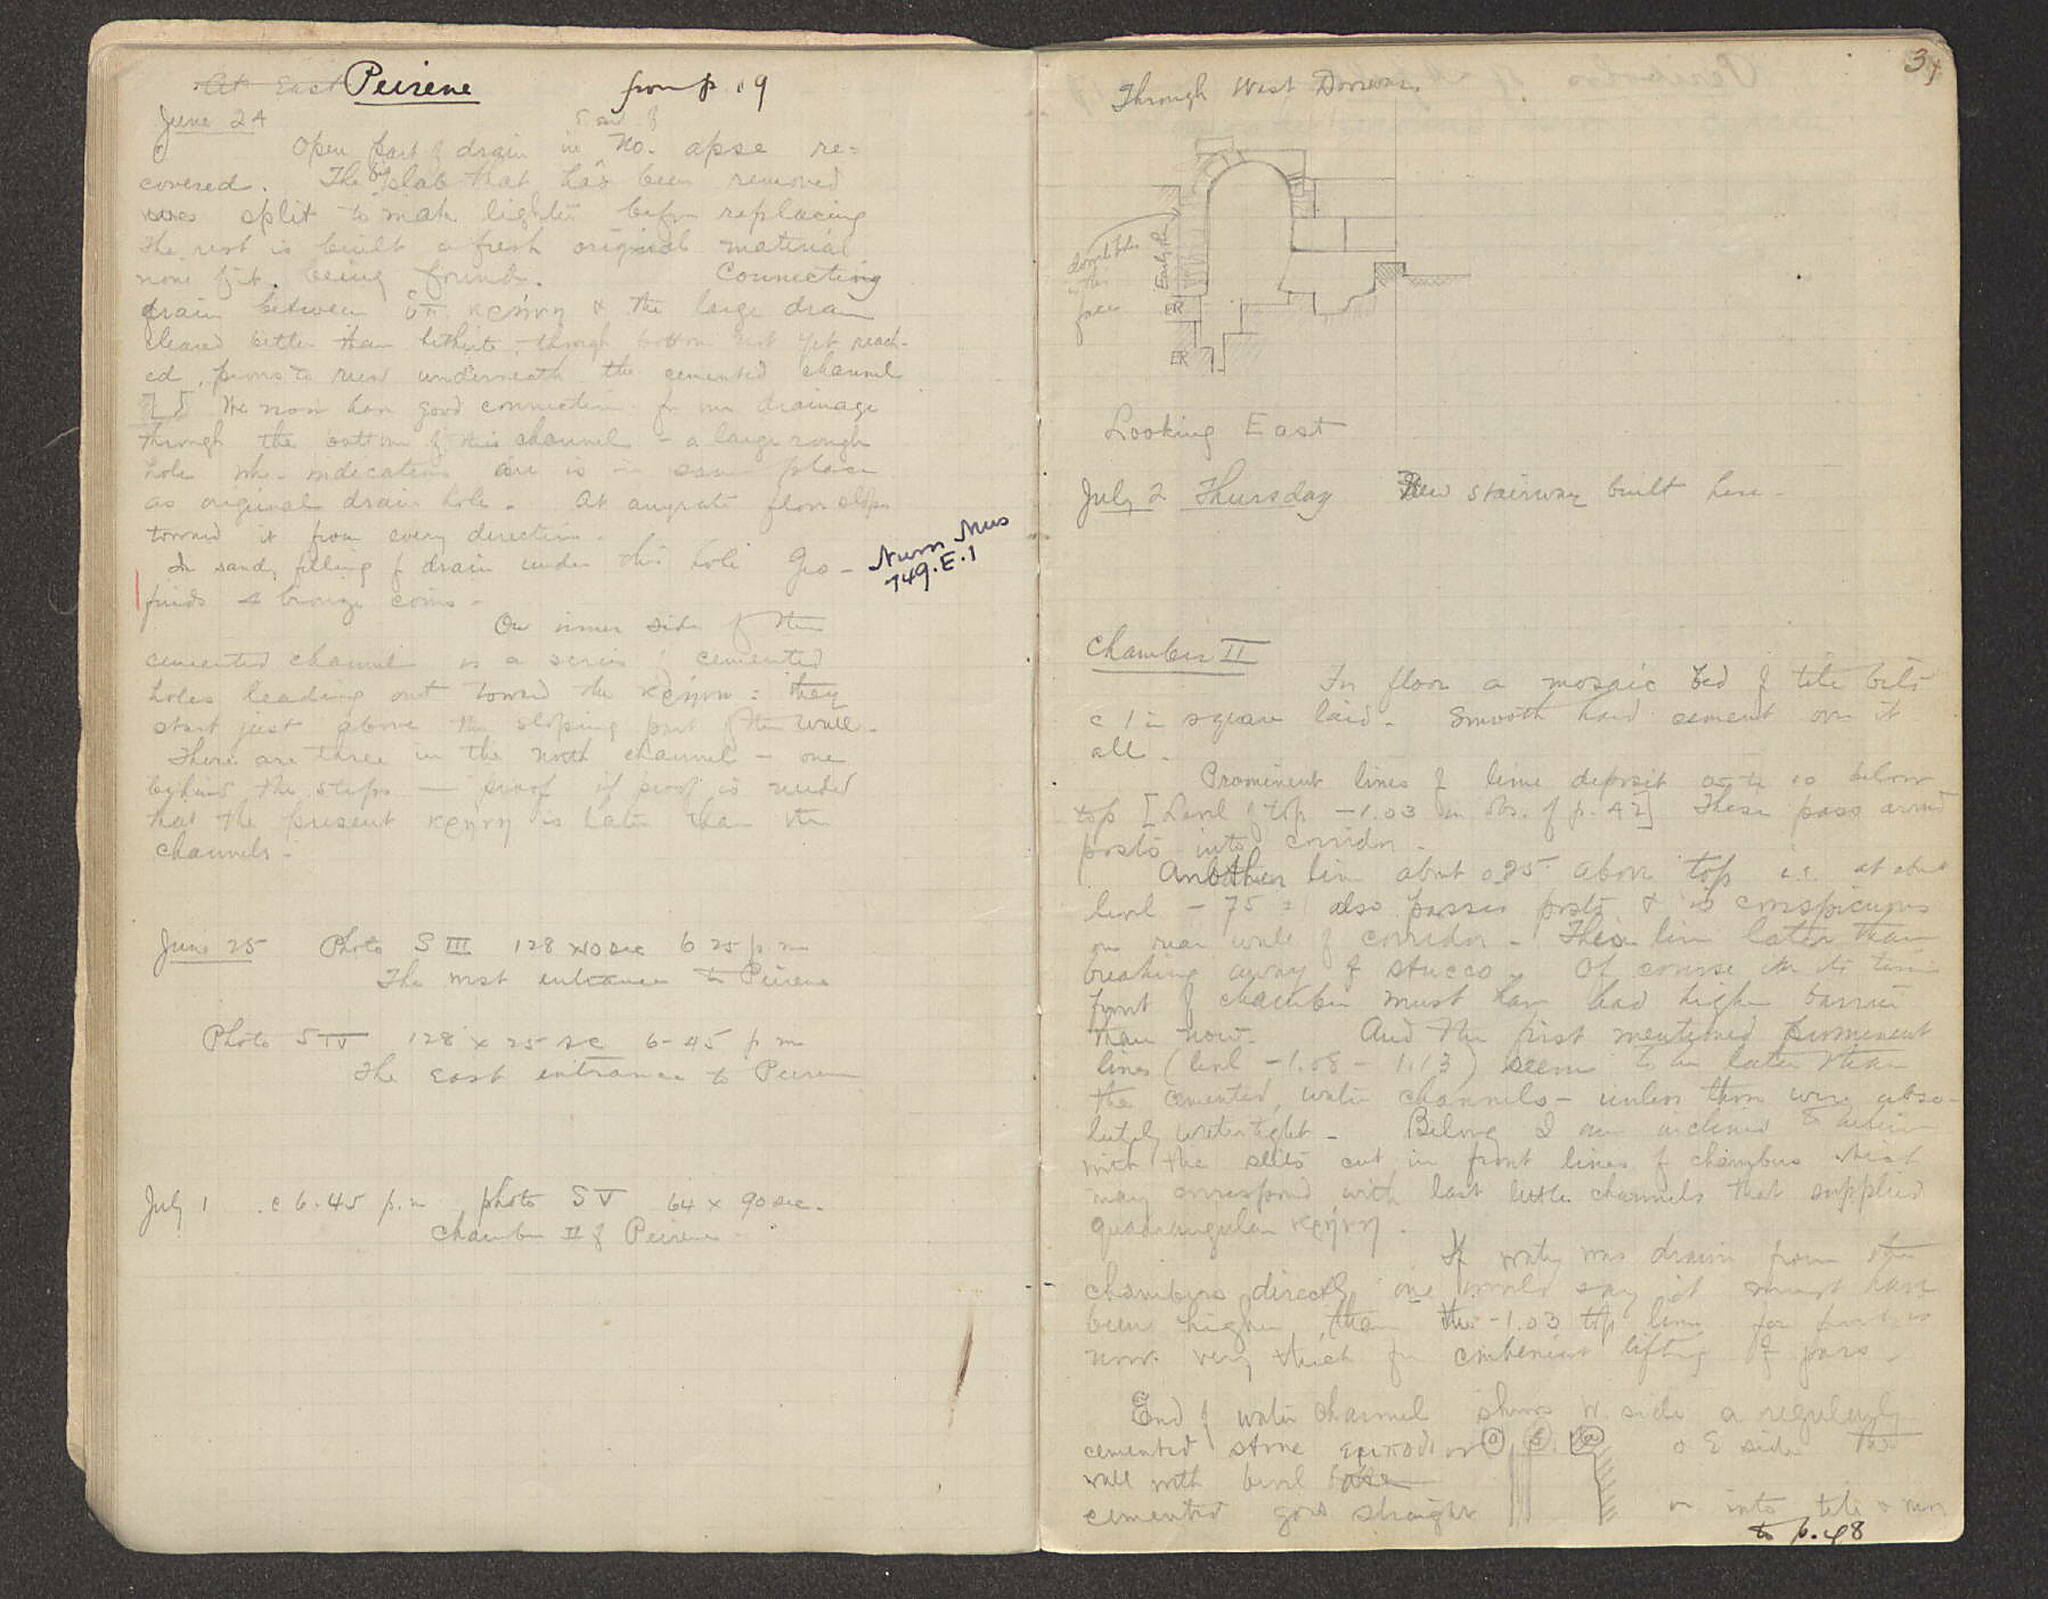 At East Peirene from p. 19
June 24
Open part of drain in No. apse re-
covered. The big slab that has been removed
was split to make lighter before replacing
The rest is built afresh original material
none of it being found. Connecting
drain between κρήνη & the large drain
cleared better than hitherto, though bottom not yet reach-
ed, proves to run underneath the cemented channel
We now have good connection for our drainage
through the bottom of this channel - a large rough
hole indications are is in same place
as original drain hole. At any rate floor slopes
toward it from every direction.
In sandy filling of drain under this hole Geo-
finds 4 bronze coins -
Num Mus
749.E.1
On inner side of the
cemented channel is a series of cemented
holes leading out toward the κρήνη: they
start just above the sloping part of the wall -
There are three in the north channel - one
behind the steps - proof if proof is needed
that the present κρήνη is later than the
channels -
June 25 Photo S III 128 x 10 sec 6 25 p m
The west entrance to Peirene
Photo S IV 128 x 25 sec 6-45 p m
The East entrance to Peirene
July 1 c 6.45 p.m photo S V 64 x 90 sec.
Chamber II of Peirene
Through West Doorway
dowel holes
in this
face
Early R
ER
ER
Looking East
July 2 Thursday New stairway built here -
Chamber II
For floor a mosaic bed of tile bits
c 1 in square laid - Smooth hard cement over it
all -
Prominent lines of lime deposit .05 to .10 below
top [Level of top -1.03 p. 42] These pass around
posts into corridor -
Another line about .25 above top i.e. at about
level -75 = also passes posts & is conspicuous
on rear wall of corridor - This line later than
breaking away of stucco. Of course in its time
front of chamber must have had higher barrier
than now. And the first mentioned prominent
lines (level -1.08 - 1.13) seem to be later than
the cemented water channels - unless these were abso-
lutely watertight - Belong I am inclined to believe
with the slits cut in front lines of chambers which
may correspond with last little channels that supplied
quadrangular κρήνη.
If water was drawn from the
chambers directly one would say it must have
been higher than the -1.03 top line for
now very thick for convenient lifting of jars -
End of water channel shows W. side a regularly
cemented stone E side the
wall with bevel base
cemented goes straight on into tile
to p. 48